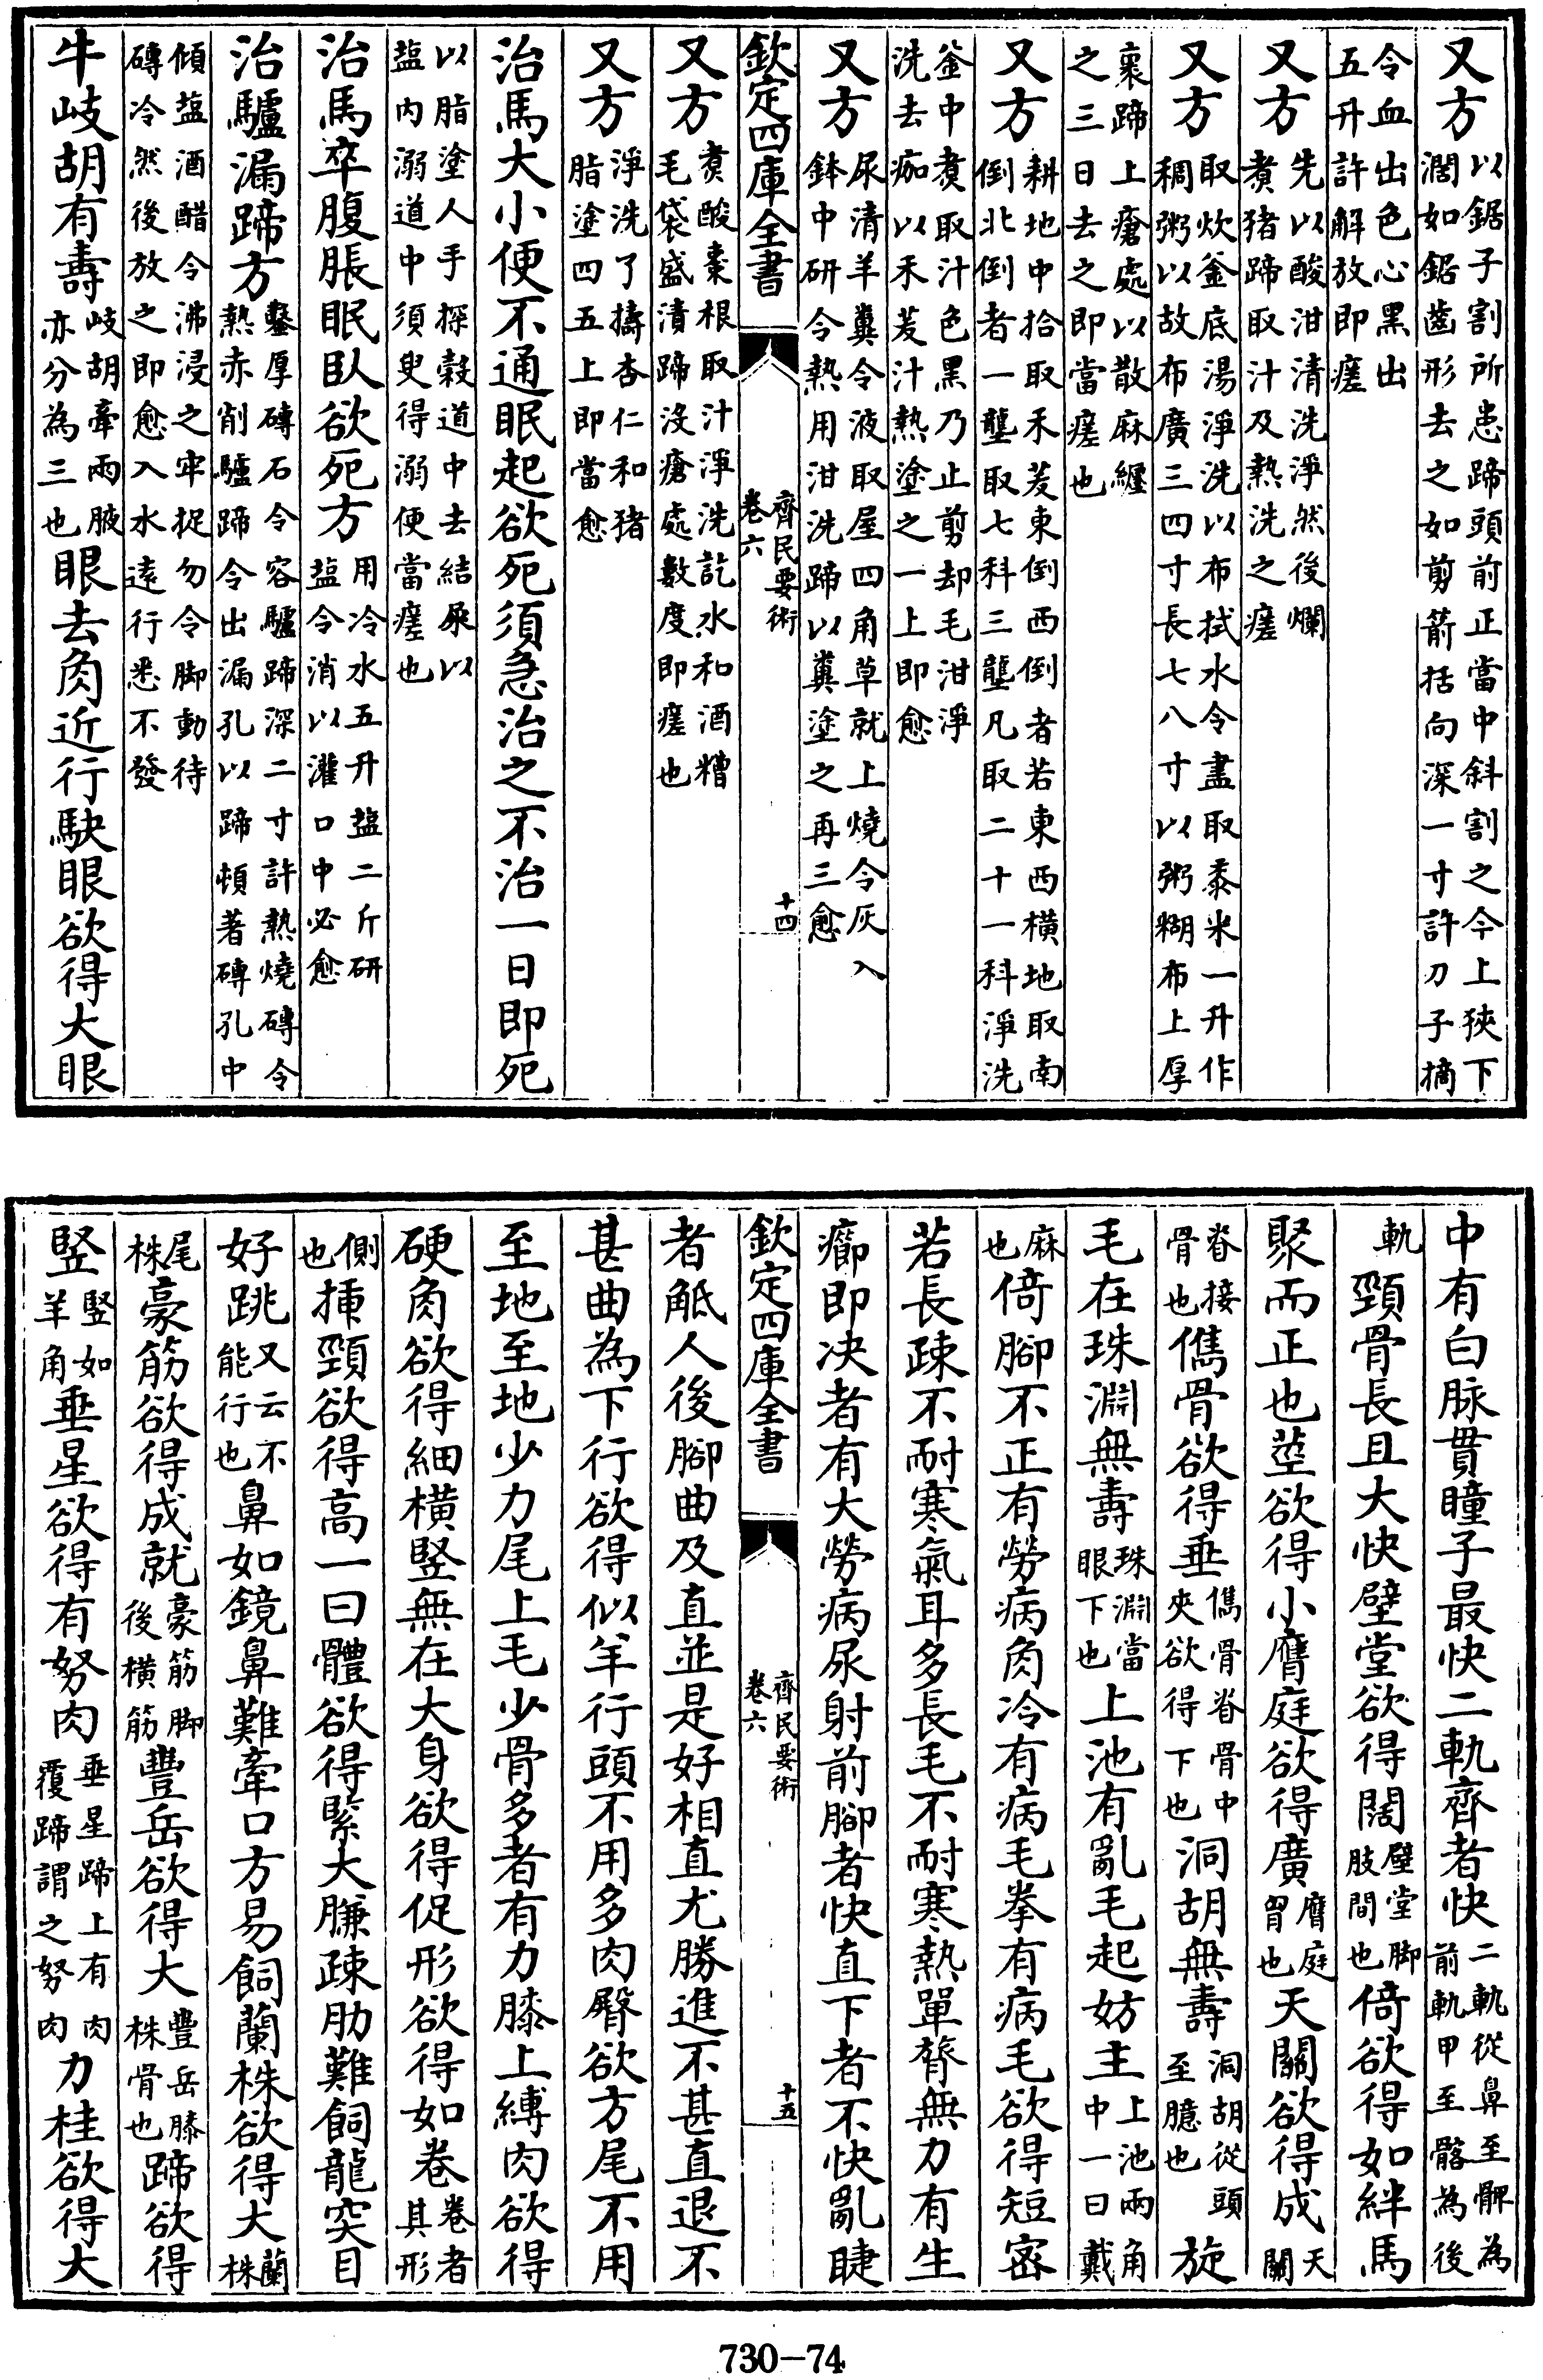 又方以鋸子割所患蹄頭前正當中斜割之今上狹下濶如鋸齒形去之如剪箭括向深一寸許刀子摘
令血出色心黑出五升許解放即瘥
又方先以酸泔清洗淨然後爛煮猪蹄取汁及熱洗之瘥
又方取炊釜底湯淨洗以布拭水令盡取黍米一升作稠粥以故布廣三四寸長七八寸以粥糊布上厚
裹蹄上瘡處以散麻纏之三日去之即當瘥也
又方耕地中拾取禾茇東倒西倒者若東西橫地取南倒北倒者一壟取七科三壟凡取二十一科淨洗
釜中煮取汁色黑乃止剪却毛泔淨洗去痂以禾茇汁熱塗之一上即愈
又方尿清羊糞令液取屋四角草就上燒令灰入鉢中研令熱用泔洗蹄以糞塗之再三愈
欽定四庫全書 齊民要術 卷六 十四
又方煮酸棗根取汁淨洗訖水和酒糟毛袋盛漬蹄沒瘡處數度即瘥也
又方淨洗了擣杏仁和猪脂塗四五上即當愈
治馬大小便不通眠起欲死須急治之不治一日即死
以脂塗人手探穀道中去結屎以盐內溺道中須臾得溺便當瘥也
治馬卒腹脹眠臥欲死方用冷水五升盐二斤研盐令消以灌口中必愈
治驢漏蹄方鑿厚磚石令容驢蹄深二寸許熱燒磚令熱赤削驢蹄令出漏孔以蹄頓著磚孔中
傾盐酒醋令沸浸之牢捉勿令脚動待磚冷然後放之即愈入水遠行悉不發
牛岐胡有壽岐胡牽兩腋亦分為三也眼去角近行駃眼欲得大眼
中有白脉貫瞳子最快二軌齊者快二軌從鼻至髀為前軌甲至髂為後
軌頸骨長且大快壁堂欲得闊壁堂脚肢間也倚欲得如絆馬
聚而正也莖欲得小膺庭欲得廣膺庭胷也天關欲得成天關
脊接骨也儁骨欲得垂儁骨脊骨中夾欲得下也洞胡無壽洞胡從頭至臆也旋
毛在珠淵無壽珠淵當眼下也上池有亂毛起妨主上池兩角中一曰戴
麻也倚腳不正有勞病角冷有病毛拳有病毛欲得短密
若長疎不耐寒氣耳多長毛不耐寒熱單膂無力有生
癤即决者有大勞病尿射前腳者快直下者不快亂睫
欽定四庫全書 齊民要術 卷六 十五
者觝人後腳曲及直並是好相直尤勝進不甚直退不
甚曲為下行欲得似羊行頭不用多肉臀欲方尾不用
至地至地少力尾上毛少骨多者有力膝上縛肉欲得
硬角欲得細橫豎無在大身欲得促形欲得如卷卷者其形
側也揷頸欲得高一曰體欲得緊大膁疎肋難飼龍突目
好跳又云不能行也鼻如鏡鼻難牽口方易飼蘭株欲得大蘭株
尾株豪筋欲得成就豪筋脚後橫筋豐岳欲得大豐岳膝株骨也蹄欲得
竪竪如羊角垂星欲得有努肉垂星蹄上有肉覆蹄謂之努肉力桂欲得大
730-74